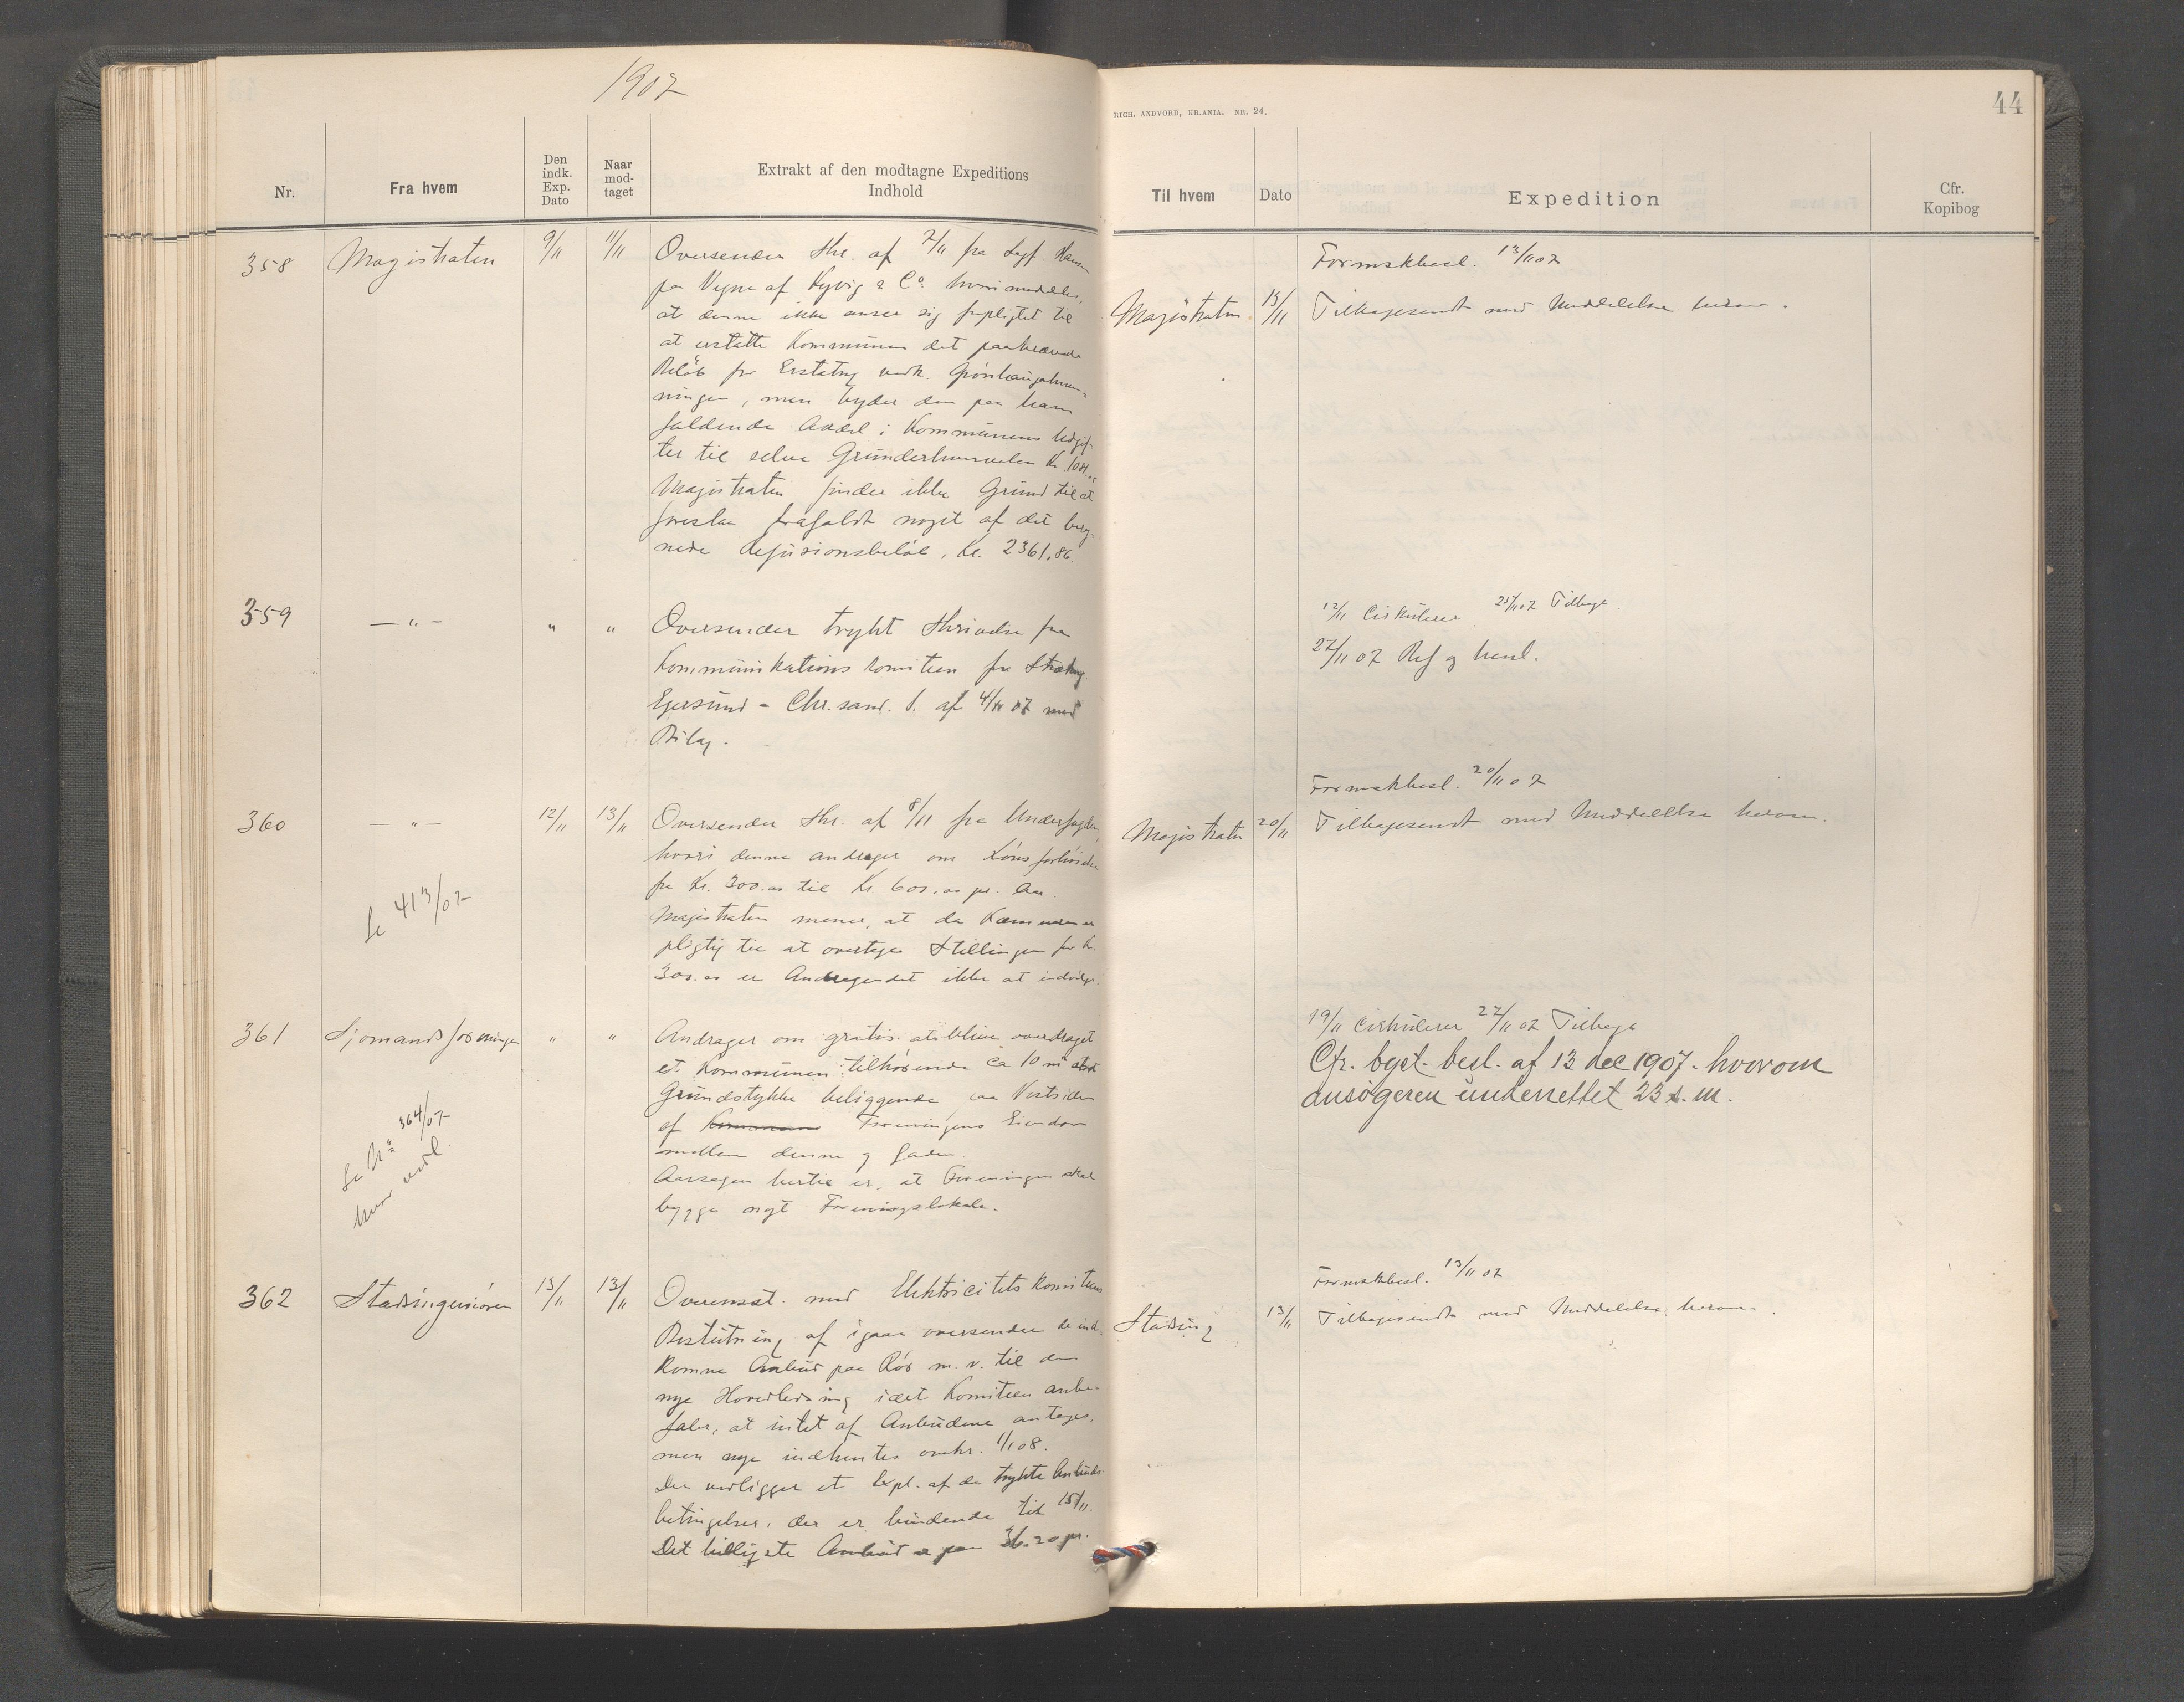 1907
RICH. ANDVORD, KR.ANIA. NR. 24.
44
Nr.
Fra hvem
Den indk. Exp. Dato
Naar mod-taget
Extrakt af den modtagne Expeditions Indhold
Til hvem
Dato
Expedition
Cfr. Kopibog
358 Magistraten 9/11 11/11
Oversender Skr. af 7/11 fra Sagf. Hansen
paa Vegne af Kyvig & Co. hvori meddeles,
at denne ikke anser sig forpligtet til
at erstatte Kommunen det paakrævede
Beløb for Erstatng vedk.
ningen, men byder den paa ham
faldende Andel i Kommunens Udgif-
ter til selve Grunderhvervelsen Kr.
Magistraten finder ikke Grund til at
foreslaa frafaldt noget af det bereg-
nede Refusionsbeløb, Kr. 2361,86.
Formskbesl. 13/11 07
Magistraten 13/11 Tilbagesendt med Meddelelse herom.
359 — " — " "
Oversender trykt Skrivelse fra
Kommunikationskomiteen for Strækng
Egersund - Chr.sand. S. af 4/11 07 med
Bilag.
12/11 Cirkulerer 25/11 07 Tilbage
27/11 07 Ref og henl.
360 — " — 12/11 13/11
Oversender Skr. af 8/11 fra Underfogden
hvori denne andrager om Lønsforhøielse
fra Kr. 300.00 til Kr. 600,00 pr. Aar.
Magistraten mener, at da Kæmneren er
pligtig til at overtage Stillingen for Kr.
300.00 er Andragendet ikke at indvilge.
Se 413/07
Formskbesl. 20/11 07
Magistraten 20/11 Tilbagesendt med Meddelelse herom.
361 Sjømandsforeningen " "
Andrager om gratis at blive overdraget
et Kommunen tilhørende ca 10 m² stort
Grundstykke beliggende paa Vestsiden
af Foreningens Eiendom
mellem denne og Gaden.
Aarsagen hertil er, at Foreningen skal
bygge nyt Foreningslokale.
Se No 364/07
hvor vedl.
19/11 Cirkulerer 27/11 07 Tilbage
Cfr. byst. besl. af 13 dec 1907. hvorom
ansøgeren underrettet 23 s. m.
362 Stadsingeniøren 13/11 13/11
Overensst. med Elektricitetskomiteens
Beslutning af igaar oversendes de ind-
komne Anbud paa Rør m. v. til den
nye Hovedledning idet Komiteen anbe-
faler, at intet af Anbudene antages,
men nye indhentes omkr. 1/1 08.
Der vedligger et Expl. af de trykte Anbuds-
betingelser, der er bindende til 15/11.
Det billigste Anbud er paa 36.20 pr.
Formskbesl. 13/11 07
Stadsing 13/11 Tilbagesendt med Meddelelse herom.